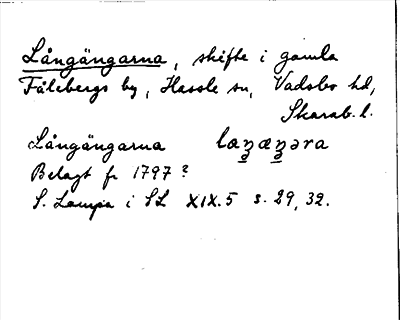 Långängarna, skifte i gamla
Fälebergs by, Hassle sn, Vadsbo hd,
Skarab. l.
Långängarna laŋæŋəra
Belagt fr 1797?
S. Lampa i SL XIX.5 s. 29, 32.